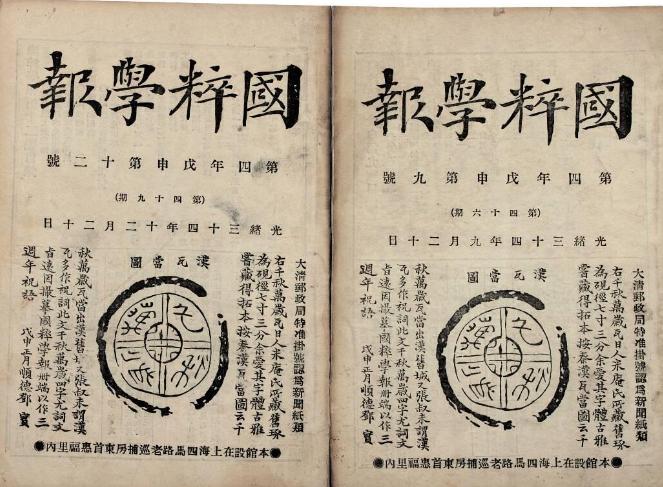 國粹學報
第四年戊申第九號
(第四十六期)
光緒三十四年九月二十日
大清郵政局特准掛號認爲新聞紙類
漢瓦當圖
右千秋萬歲瓦日人未庵氏所藏舊琢
為硯徑七寸三分余愛其字體古雅
嘗藏得拓本按秦漢瓦當圖云千
秋萬歲瓦當出漢舊城又張叔未謂漢
瓦多作祝詞此文千秋萬歲四字尤詞文
皆遠因撮摹國粹學報冊端以作三
週年祝語
戊申正月順德鄧實
●本館設在上海四馬路老巡捕房東首惠福里內●
國粹學報
第四年戊申第十二號
(第四十九期)
光緒三十四年十二月二十日
大清郵政局特准掛號認爲新聞紙類
漢瓦當圖
右千秋萬歲瓦日人未庵氏所藏舊琢
為硯徑七寸三分余愛其字體古雅
嘗藏得拓本按秦漢瓦當圖云千
秋萬歲瓦當出漢舊城又張叔未謂漢
瓦多作祝詞此文千秋萬歲四字尤詞文
皆遠因撮摹國粹學報冊端以作三
週年祝語
戊申正月順德鄧實
●本館設在上海四馬路老巡捕房東首惠福里內●